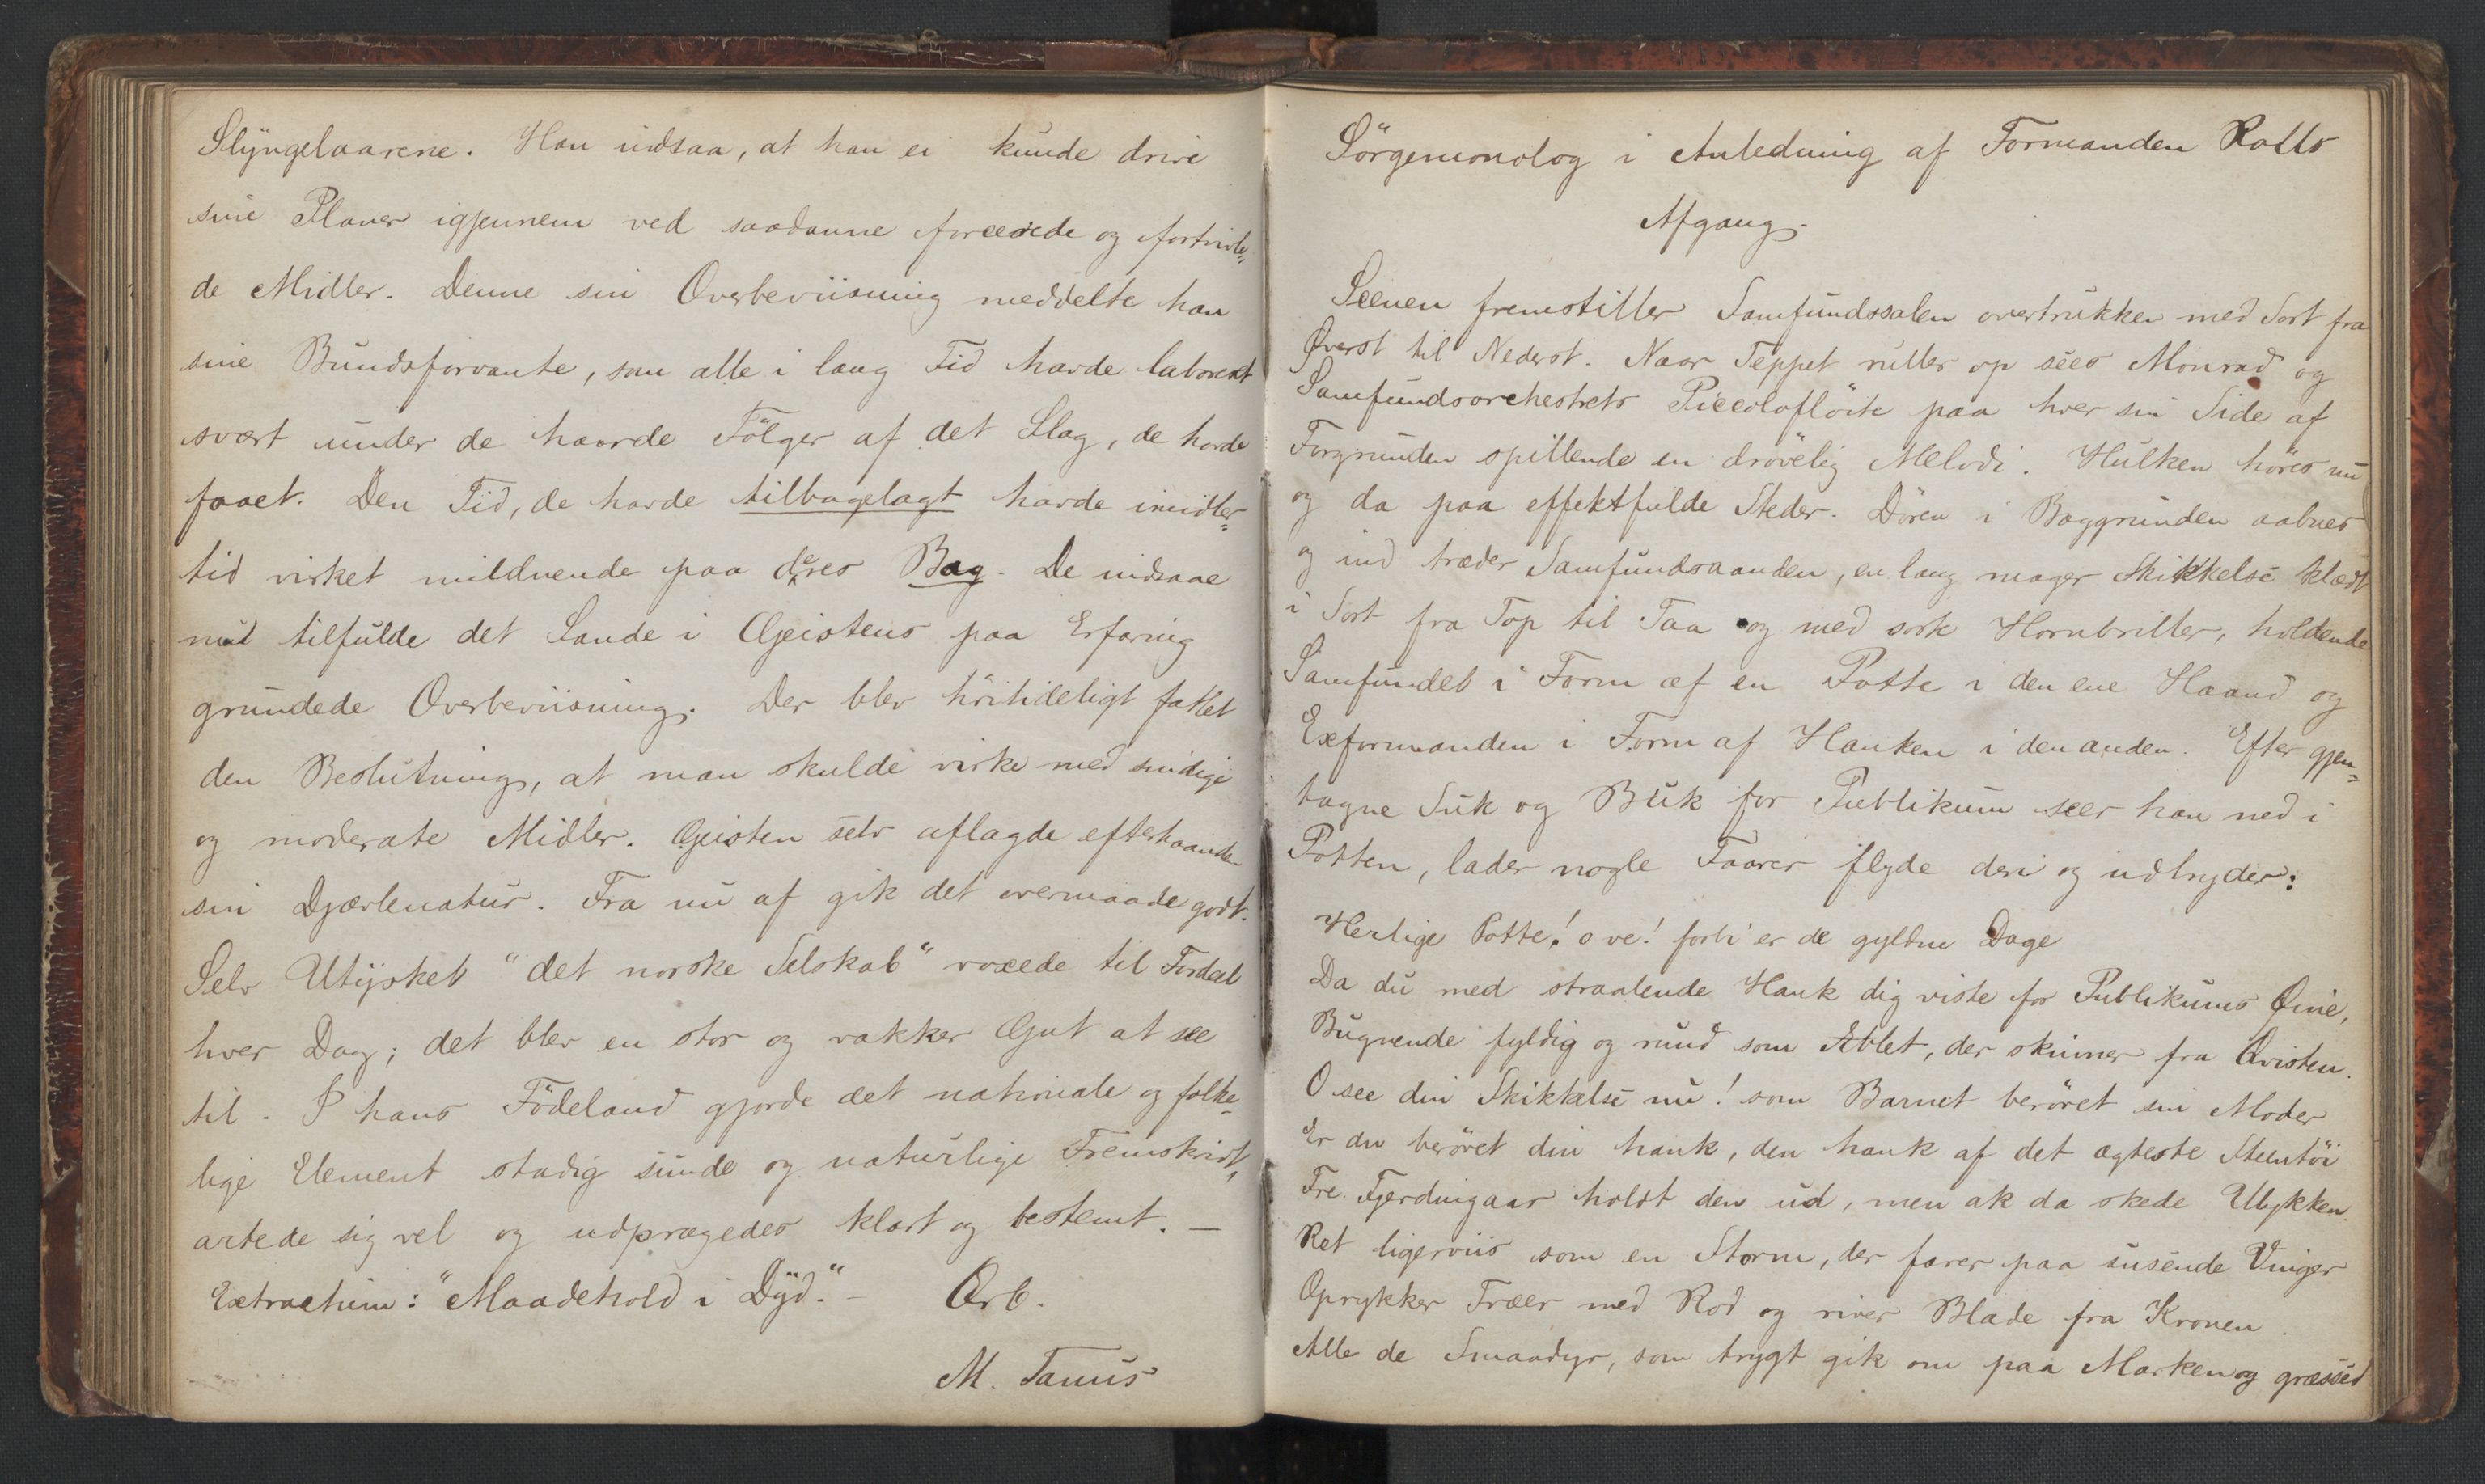 Slyngelaarene. Han indsaa, at han ei kunde drive
sine Planer igjennem ved saadanne forcerede og fortvivle-
de Midler. Denne sin Overbeviisning meddelte han
sine Bundsforvante, som alle i lang Tid havde laboreret
svært under de haarde Fölger af det Slag, de havde
faaet. Den Tid, de havde tilbagelagt havde imidler-
tid virket mildnende paa deres Bag. De indsaae
nu tilfulde det Sande i Geistens paa Erfaring
grundede Overbeviisning. Der blev höitideligt fattet
den Beslutning, at man skulde virke med sindige
og moderate Midler. Geisten selv aflagde efterhaanden
sin Djævlenatur. Fra nu af gik det overmaade godt.
Selv Utÿsket "det norske Selskab" voxede til Fordeel
hver Dag; det blev en stor og vakker Gut at see
til. I hans Födeland gjorde det nationale og folke-
lige Element stadig sunde og naturlige Fremskridt,
artede sig vel og udprægedes klart og bestemt. —
Extractum: "Maadehold i Dÿd." — Orb.
M. Tanus
Sörgemonolog i Anledning af Formanden Rolls
Afgang.
Scenen fremstiller Samfundssalen overtrukken med Sort fra
Øverst til Nederst. Naar Teppet ruller op sees Monrad og
Samfundsorchestrets Piccolaflöite paa hver sin Side af
Forgrunden spillende en drövelig Melodi. Hulken höres nu
og da paa effektfulde Steder. Dören i Baggrunden aabnes
og ind træder Samfundsaanden, en lang mager Skikkelse klædt
i Sort fra Top til Taa og med sorte Hornbriller, holdende
Samfundet i Form af en Potte i den ene Haand og
Exformanden i Form af Hanken i den anden. Efter gjen-
tagne Suk og Buk for Publikum seer han ned i
Potten, lader nogle Taarer flyde deri og udbryder:
Herlige Potte! o ve! forbi er de gyldne Dage
Da du med straalende Hank dig viste for Publikums Øine,
Bugnende fyldig og rund som Æblet, der skinner fra Qvisten.
O see din Skikkelse nu! som Barnet berövet sin Moder
Er du berövet din hank, den hank af det ægteste Steentöi
Tre Fjerdingaar holdt den ud, men ak da skede Ulykken.
Ret ligerviis som en Storm, der farer paa susende Vinger
Oprykker Træer med Rod og river Blade fra Kronen.
Alle de Smaadyr, som trygt gik om paa Marken og græssed